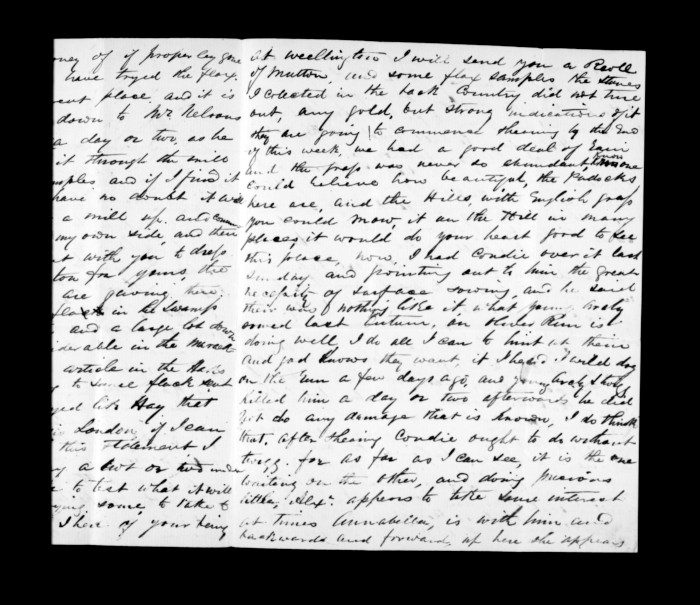 oney of if proper ley gone
have tryed the flax,
ent place, and it is
down to Mr Nelsons
a day or two, as he
it through the mill
mples, and if I find it
have no doubt it will
a mill up, and
my own side, and then
with you to dress
ton for yours, the
are paving there
flax in the Swamp
and a large lot down
iderable in the
article in the
to Some flack sent
ged like Hay that
in London, if I can
this statement I
a cwt or two under
to test what it will
some, to take to
I here of your being
at wellington I will send you a Rooll
of Mutton, and some flax samples the stones
I colected in the back Country did not turn
out, any gold, but strong indications of it
they are going to commence shearing by the End
of this week, we had a good deal of Rain
and the grass was never so abundant, no one
could believe how beautiful, the Padocks
here are, and the Hills, with English grass
you could mow, it on the Hill in many
places it would do your heart good to see
this place, now, I had Condie over it last
Sunday and pointing out to him the great
necessity of surface sowing, and he said
their was nothing like it, what young
sowed last Autum, on Run is
doing well, I do all I can to hint at them
and god knows they want, it I heard I wild dog
on the Run a few days ago, and young
killed him a day or two afterwards he did
not do any damage that is known, I do think
that, after shearing Condie ought to do without
twigg. for as far as I can see, it is the one
waiting on the other, and doing
little, Alxr. appears to take some interest
at times Annabella, is with him and
backwards and forwards, up here she appears